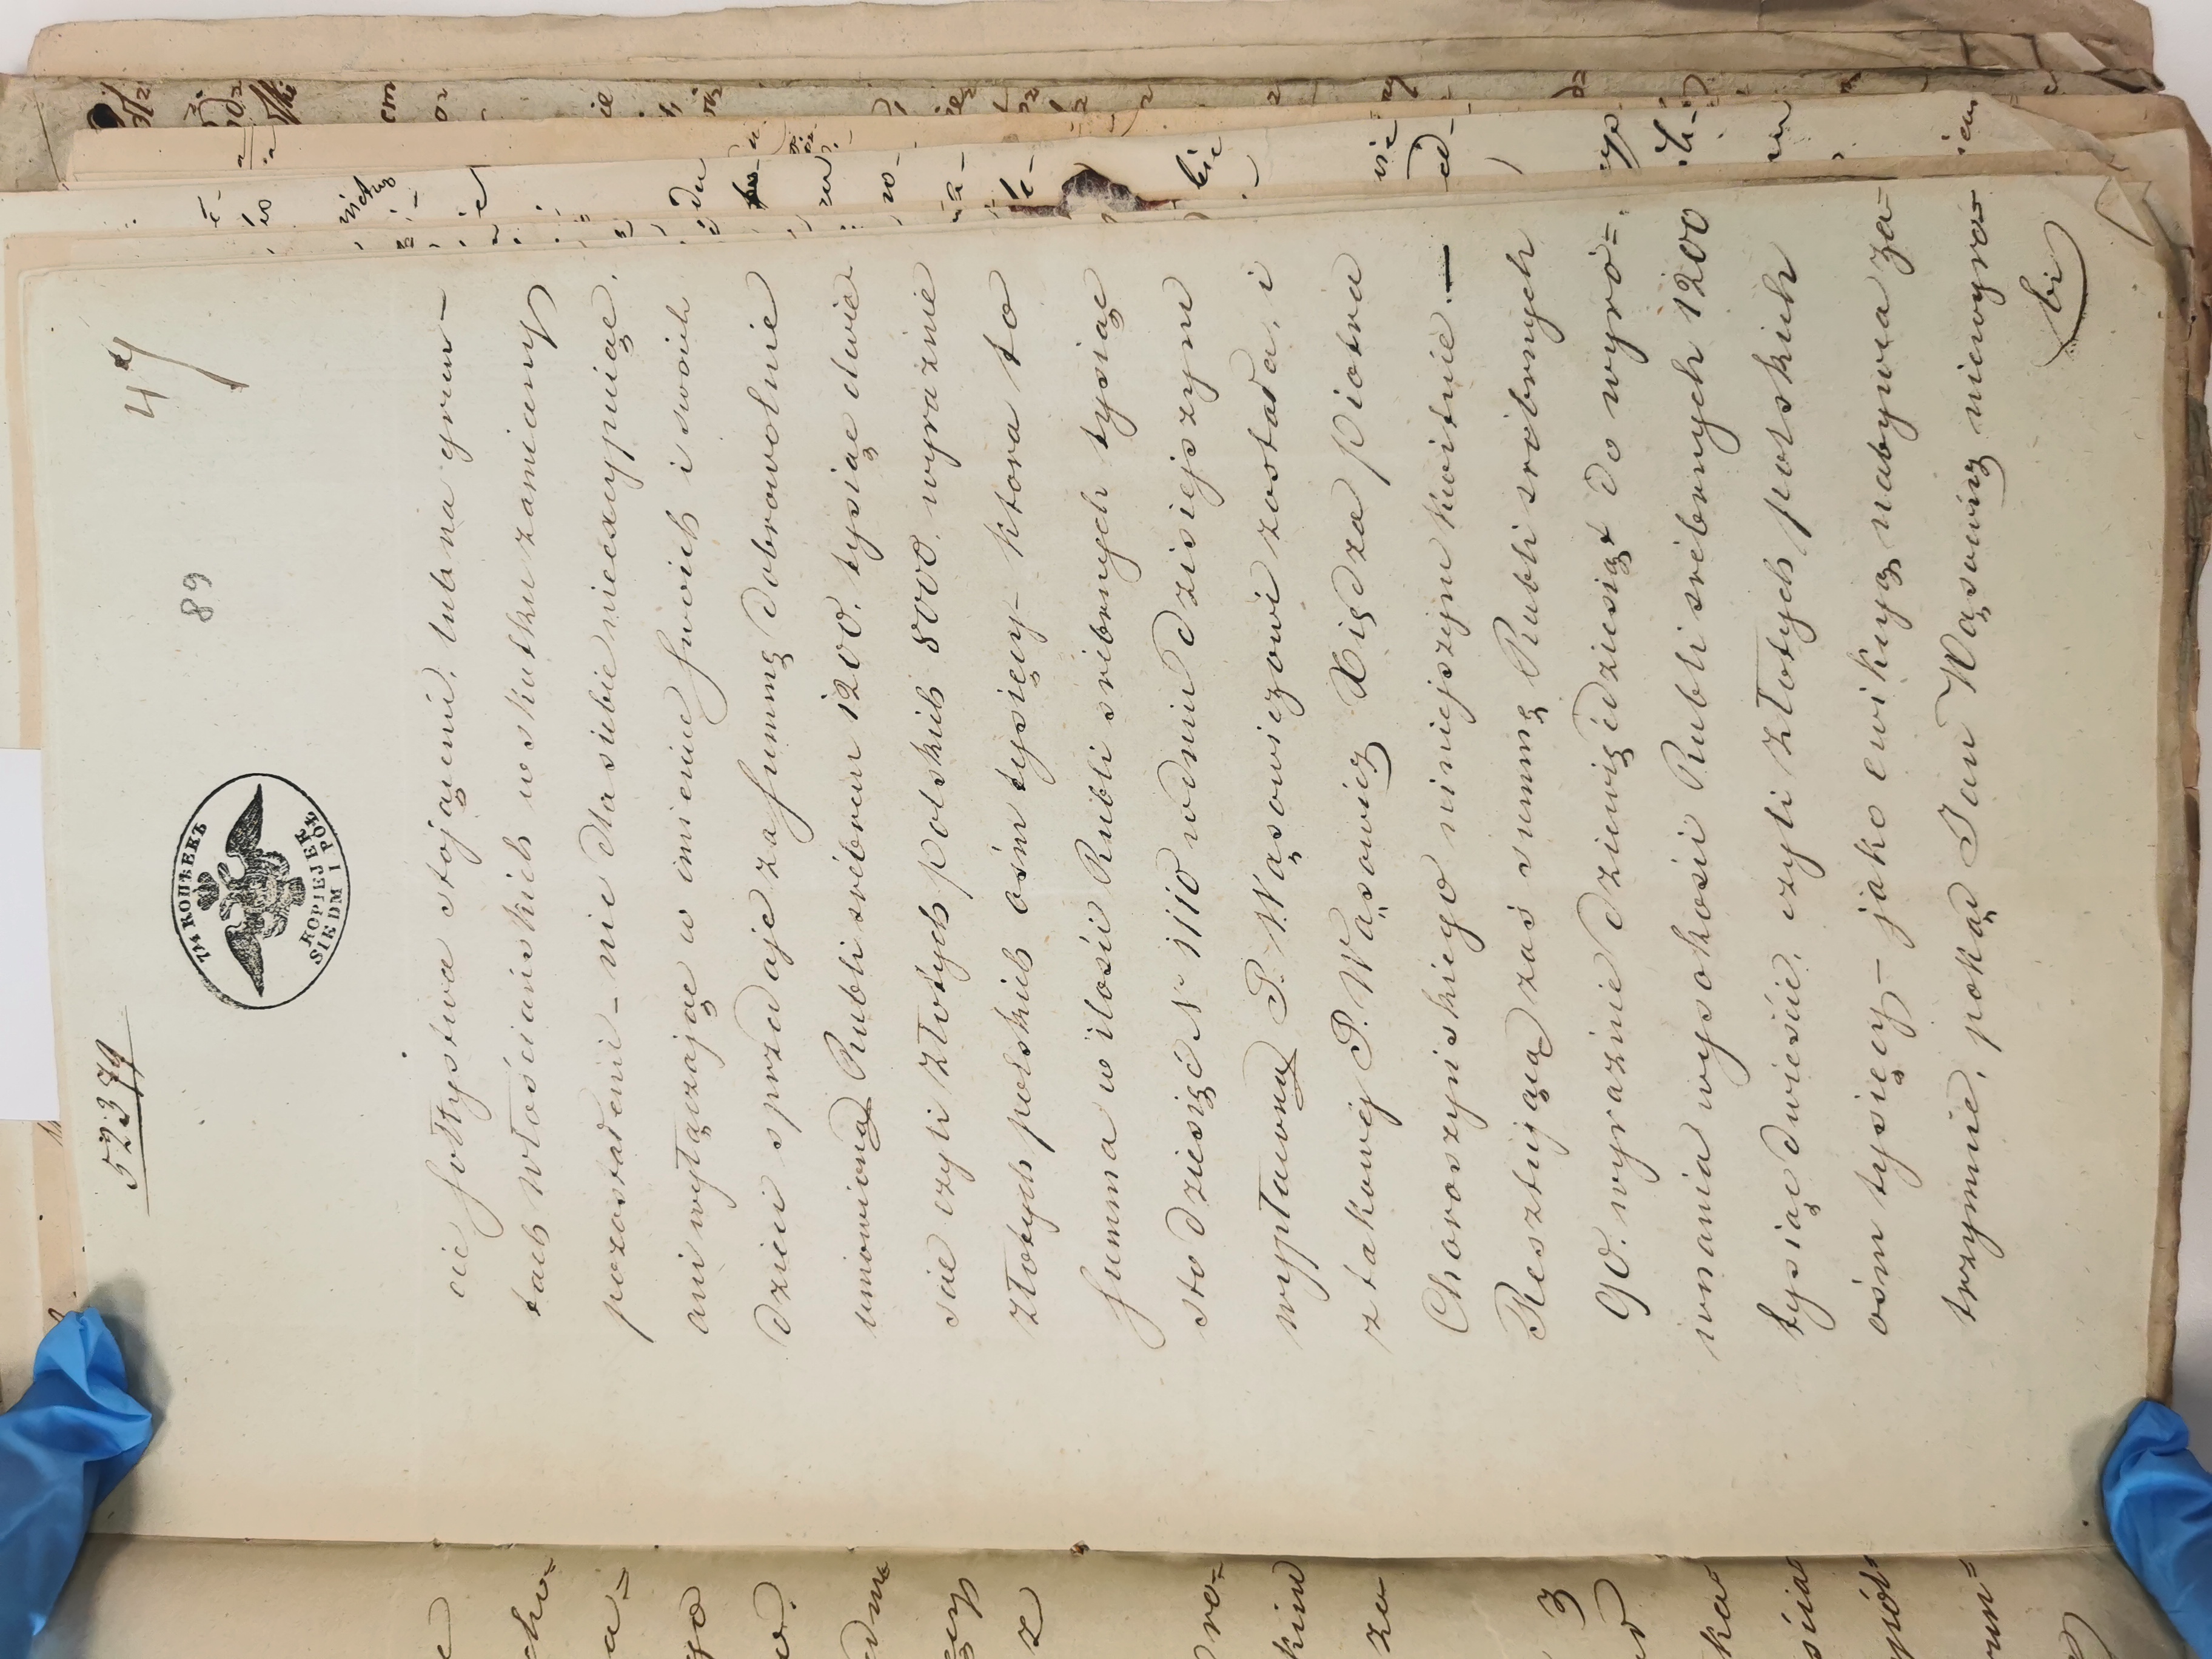 5237/9
7½ КОПѢЕКЪ
KOPIEJEK
SIEDM I PÓŁ
89
47
cie fołtystwa stojącemi, lub na grun-
tach włościańskich w skutku zamiany
pozostałemi – nic dla siebie nieexcypuiąc,
ani wyłączając w imieniu swoich i swoich
dzieci sprzedaje za summę dobrowolnie
umowioną Rubli srébrem 1200. tysiąc dwie
scie czyli złotych polskich 8000. wyraznie
złotych polskich ośm tysięcy – ktora to
summa w ilości Rubli srébrnych tysiąc
sto dziesięć Nr 1110 w dniu dzisiejszym
wypłacona P. Wąsowiczowi została, i
z takowej P. Wąsowicz Xiędza Piotra
Choroszyńskiego niniejszym kwituie. —
Resztującą zaś summę Rubli srébrnych
90. wyraźnie dziewięćdziesiąt do wyró=
wnania wysokości Rubli srébrnych 1200
tysiąc dwieście, czyli złotych polskich
ośm tysięcy – jako ewikcyą nabywca za-
trzymuie, pokąd Jan Wąsowicz niewyro-
bi